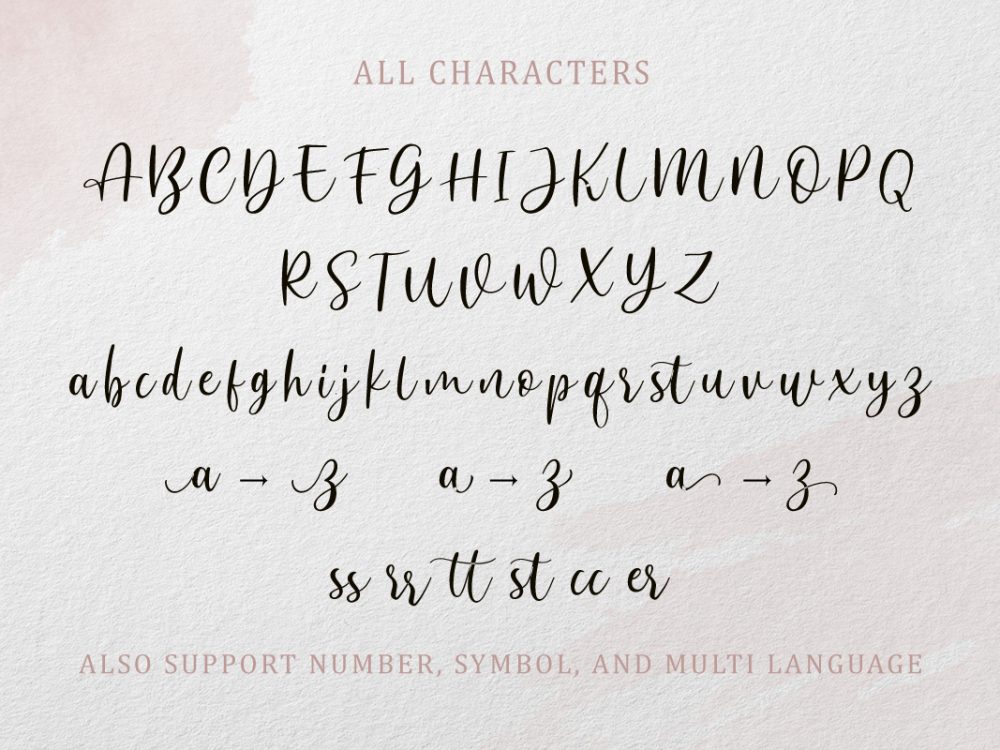 ALL CHARACTERS
ABCDEFGHIJKLMNOPQ
RSTUVWXYZ
abcdefghijklmnopqrstuvwxyz
a → z a → z a → z
ss rr tt st cc er
ALSO SUPPORT NUMBER, SYMBOL, AND MULTI LANGUAGE